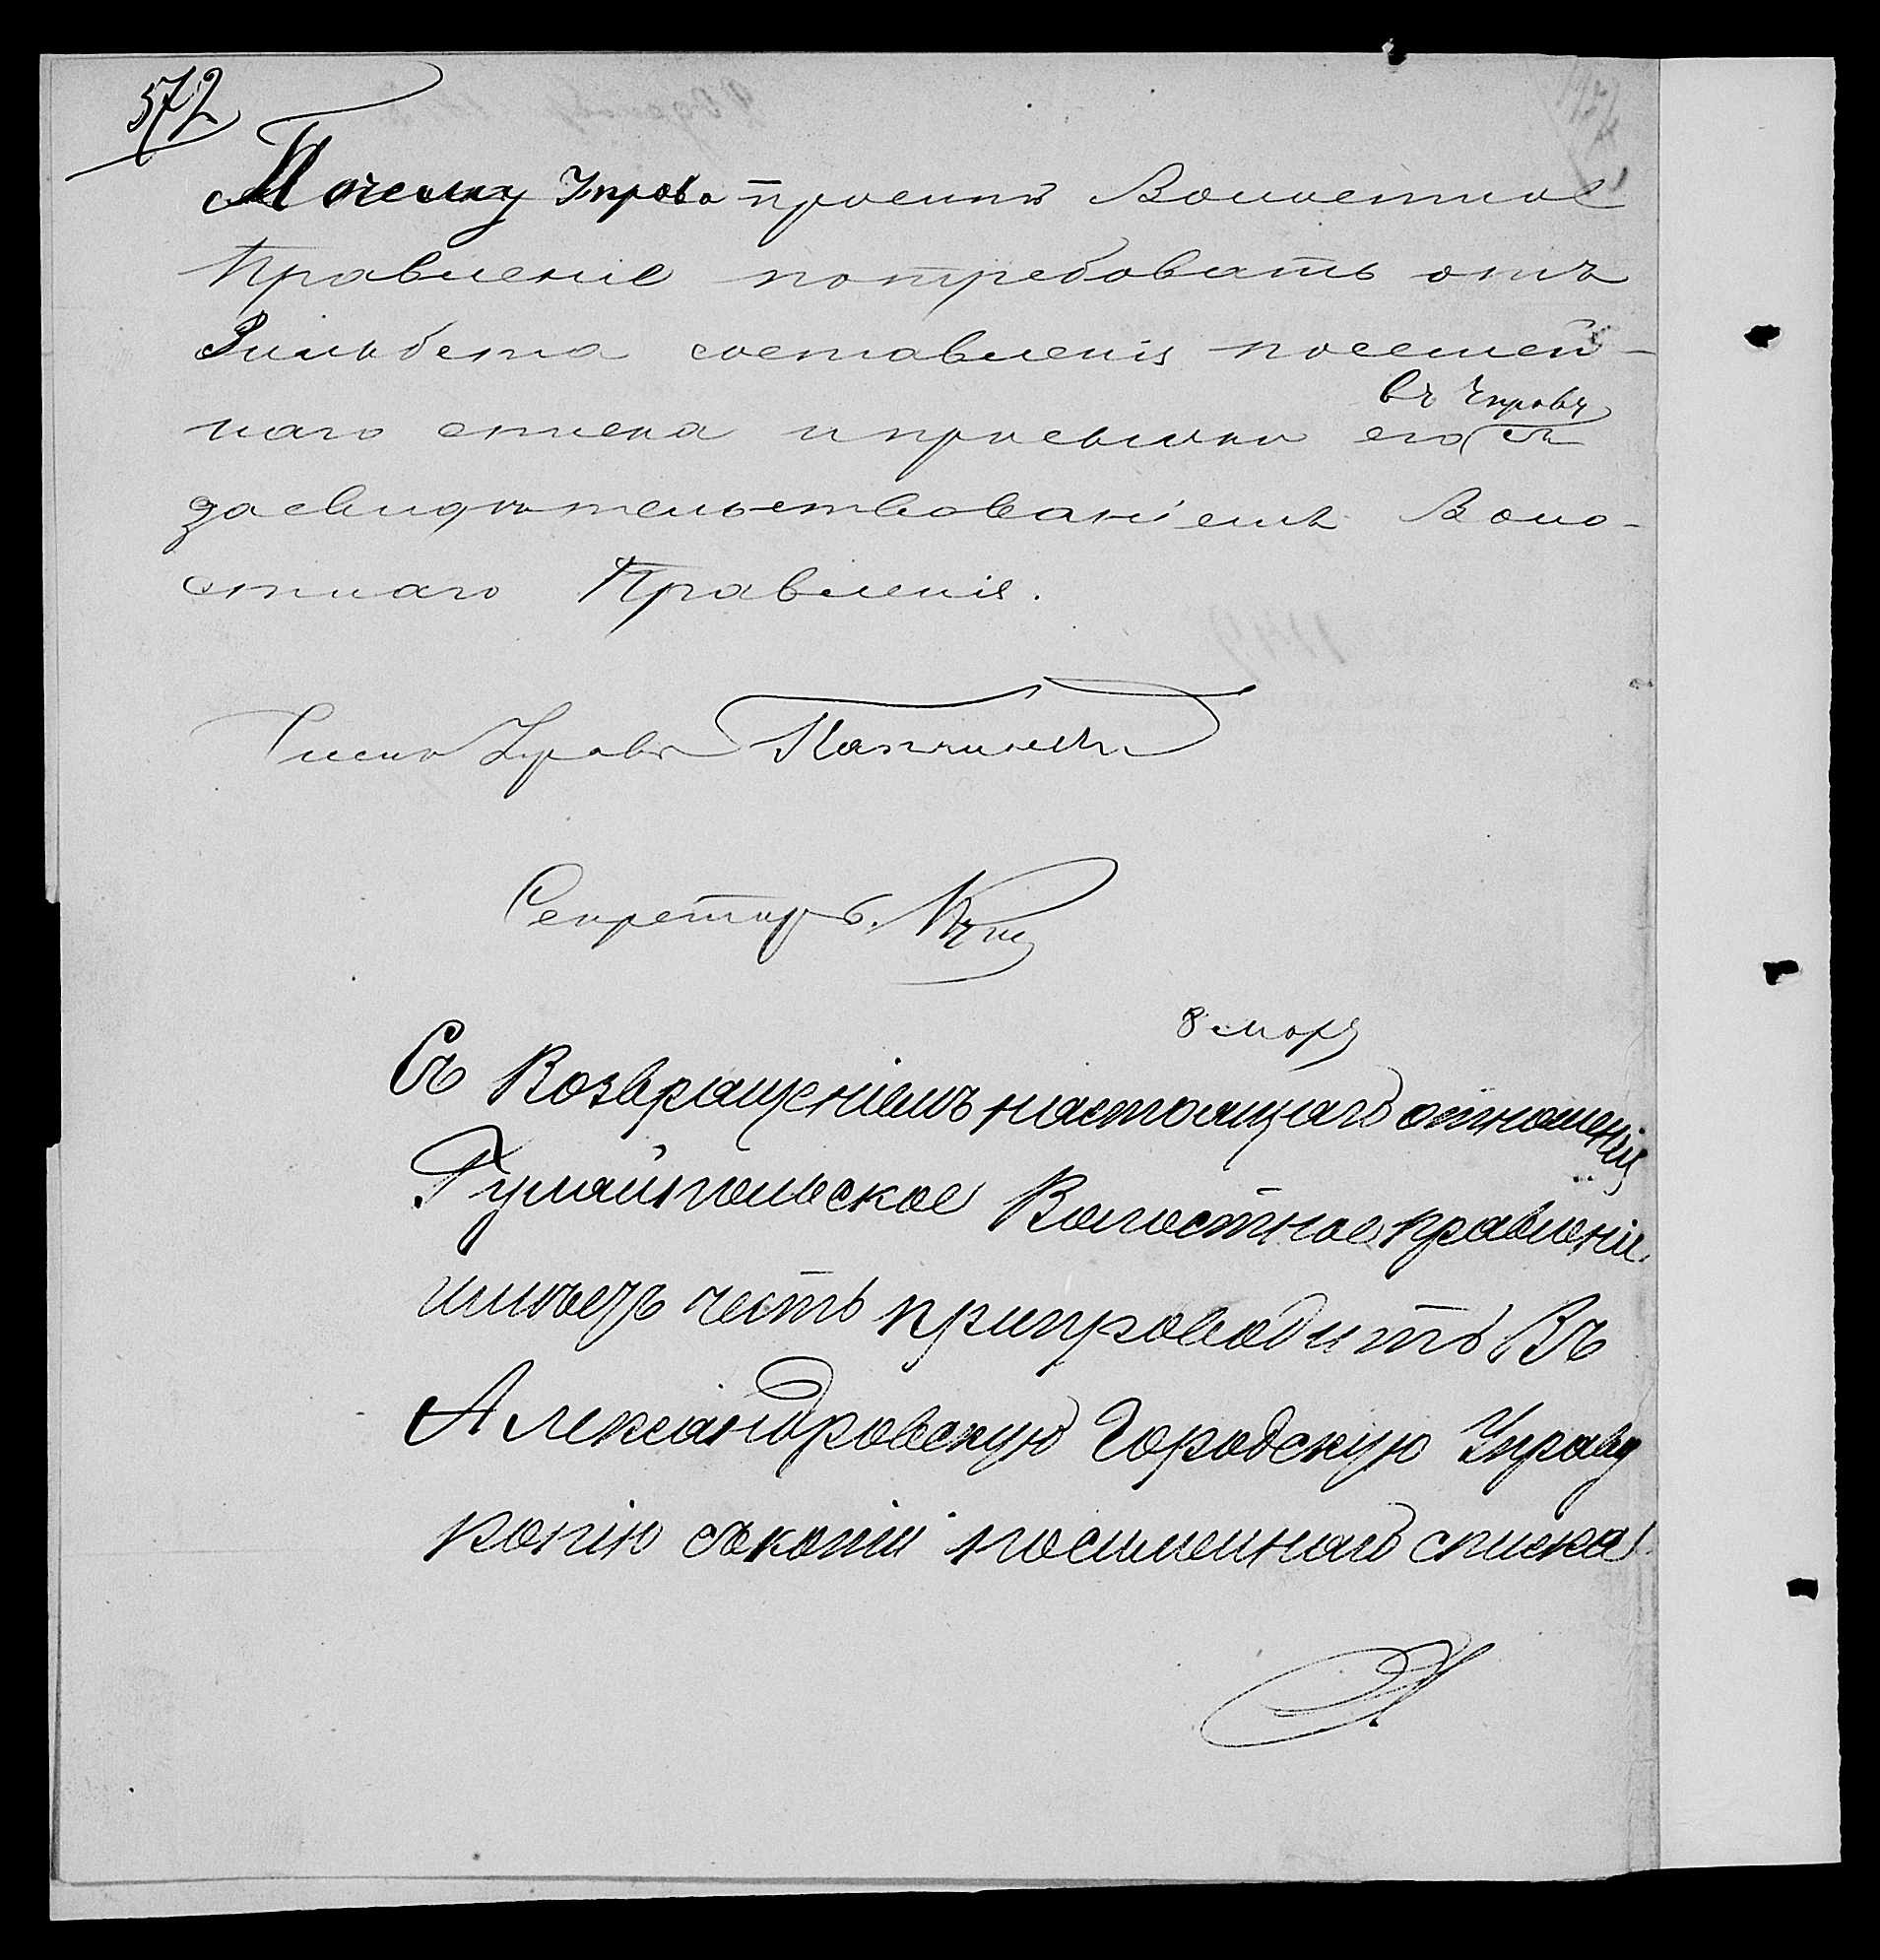 572
Почему Управа просит Волостное
Правленіе потребовать отъ
Зильбета составленія посемей-
наго списка и присылки его съ
въ Управу
засвидѣтельствованіемъ Воло-
стнаго Правленія.
Членъ Управы
Секретарь
8 мар
Съ Возвращеніемъ настоящаго отношенія
Гуляйпольское Волостное правленіе
имѣетъ честь припроводить Въ
Александровскую Городскую Управу
копію съ копіи посимейнаго списка